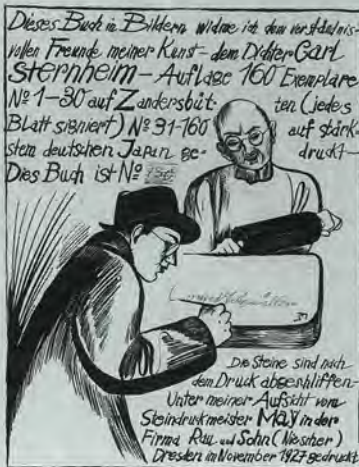 Dieses Buch in Bildern widme ich dem verständnis-
vollen Freunde meiner Kunst – dem Dichter Carl
Sternheim – Auflage 160 Exemplare
№ 1–30 auf Zandersbüt- ten (jedes
Blatt signiert) № 31–160 auf stärk
stem deutschen Japan ge- druckt –
Dies Buch ist №
Die Steine sind nach
dem Druck abgeschliffen
Unter meiner Aufsicht vom
Steindruckmeister May in der
Firma Rau und Sohn (Niescher)
Dresden im November 1927 gedruckt